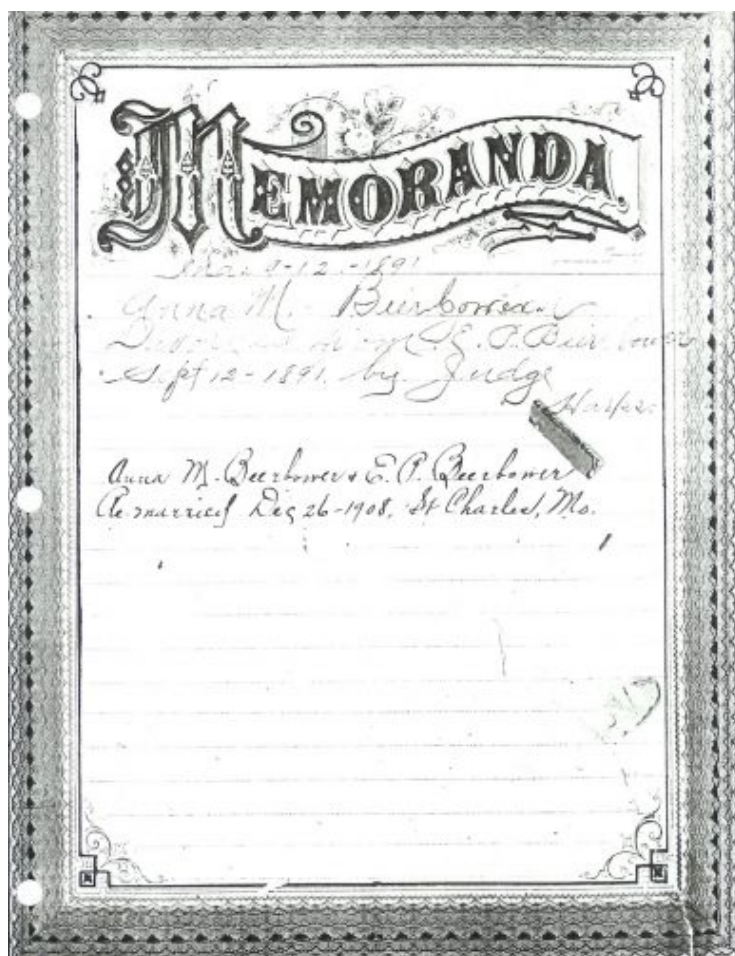 MEMORANDA.
9-12-1891
Anna M. Beerbower
Divorced from E. P. Beerbower
Sept 12-1891. by Judge
Anna M. Beerbower & E. P. Beerbower
Re-married Dec 26-1908, St Charles, Mo.